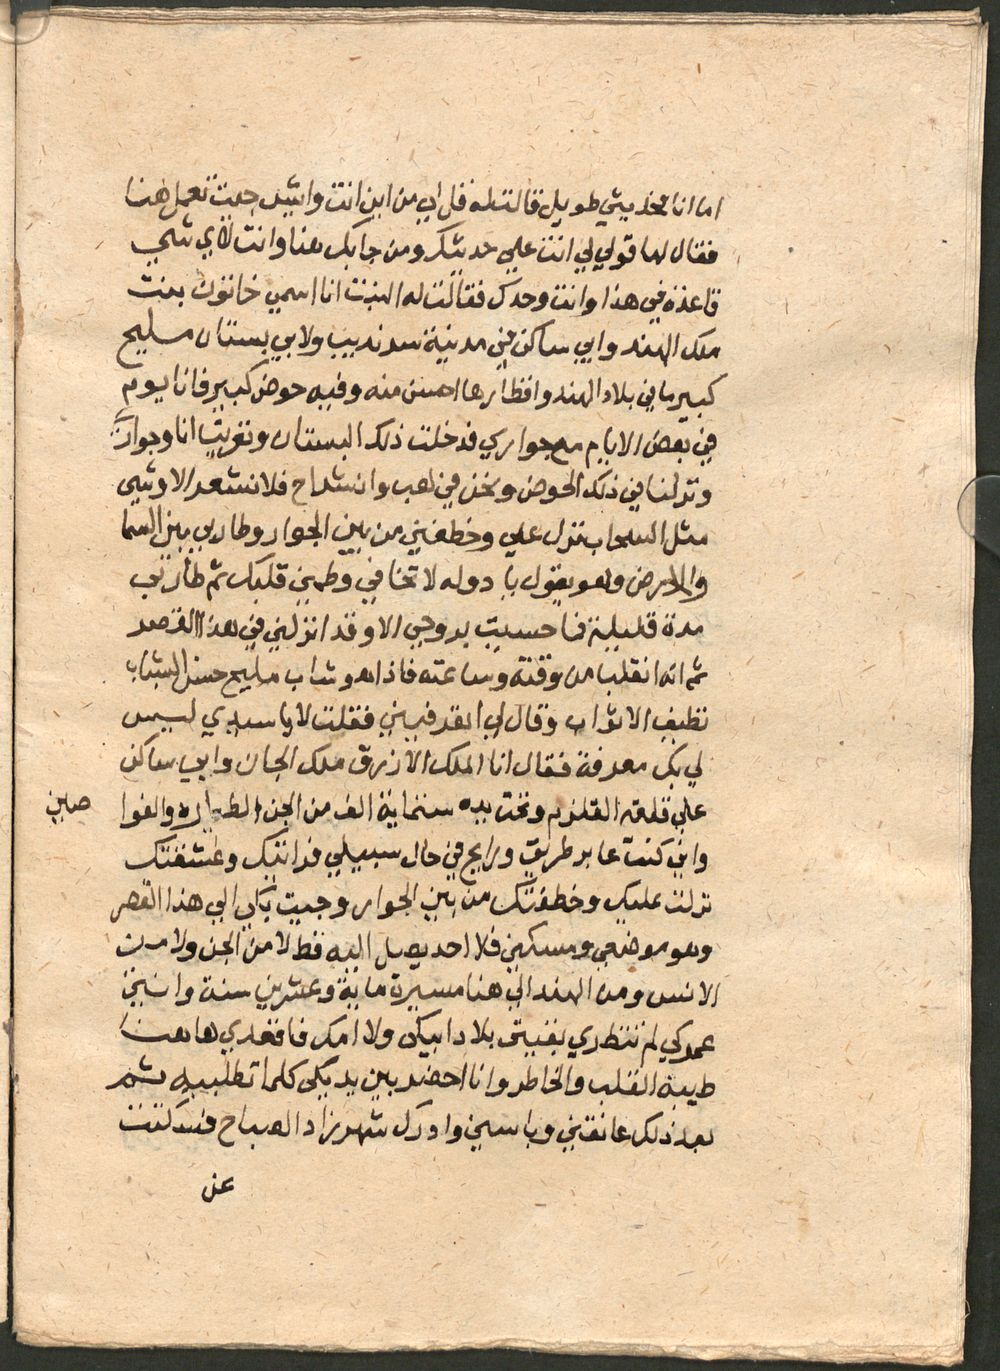 اما انا فحديثي طويل قالت له قل لي من اين انت وايش جيت تعمل هنا
فقال لها قولي لي انت علي حديثك ومن جابك هنا وانت لاي شي
قاعدة في هذا وانت وحدك فقالت له البنت انا اسمي خاتون بنت
ملك الهند وابي ساكن في مدينة سرنديب ولابي بستان مليح
كبير ما في بلاد الهند واقطارها احسن منه وفيه حوض كبير فانا يوم
في بعض الايام مع جواري فدخلت ذلك البستان وتعريت انا وجواري
ونزلنا في ذلك الحوض ونحن في لعب وانشراح فلا نشعر الا وشي
مثل السحاب نزل علي وخطفني من بين الجوار وطار بي بين السما
والارض وهو يقول يا دوله لا تخافي وطمني قلبك ثم طار بي
مدة قليلة فما حسيت بروحي الا وقد انزلني في هذا القصر
ثم انه انقلب من وقته وساعته فاذا هو شاب مليح حسن الشباب
نظيف الاثواب وقال لي اتعرفيني فقلت لا يا سيدي ليس
لي بك معرفة فقال انا ابن الملك الازرق ملك الجان وابي ساكن
علي قلعة القلزم وتحت يده ستماية الف من الجن الطيارة والغوا
صين
واني كنت عابر طريق ورايح في حال سبيلي فرايتك وعشقتك
نزلت عليك وخطفتك من بين الجوار وجيت بكي الي هذا القصر
وهو موضعي ومسكني فلا احد يصل اليه قط لا من الجن ولا من
الانس ومن الهند الي هنا مسيرة ماية وعشرين سنة وانتي
عمركي لم تنظري بقيتي بلاد ابيكي ولا امك فاقعدي هاهنا
طيبة القلب والخاطر وانا احضر بين يديكي كلما تطلبيه ثم
بعد ذلك عانقني وباسني وادرك شهرزاد الصباح فسكتت
عن